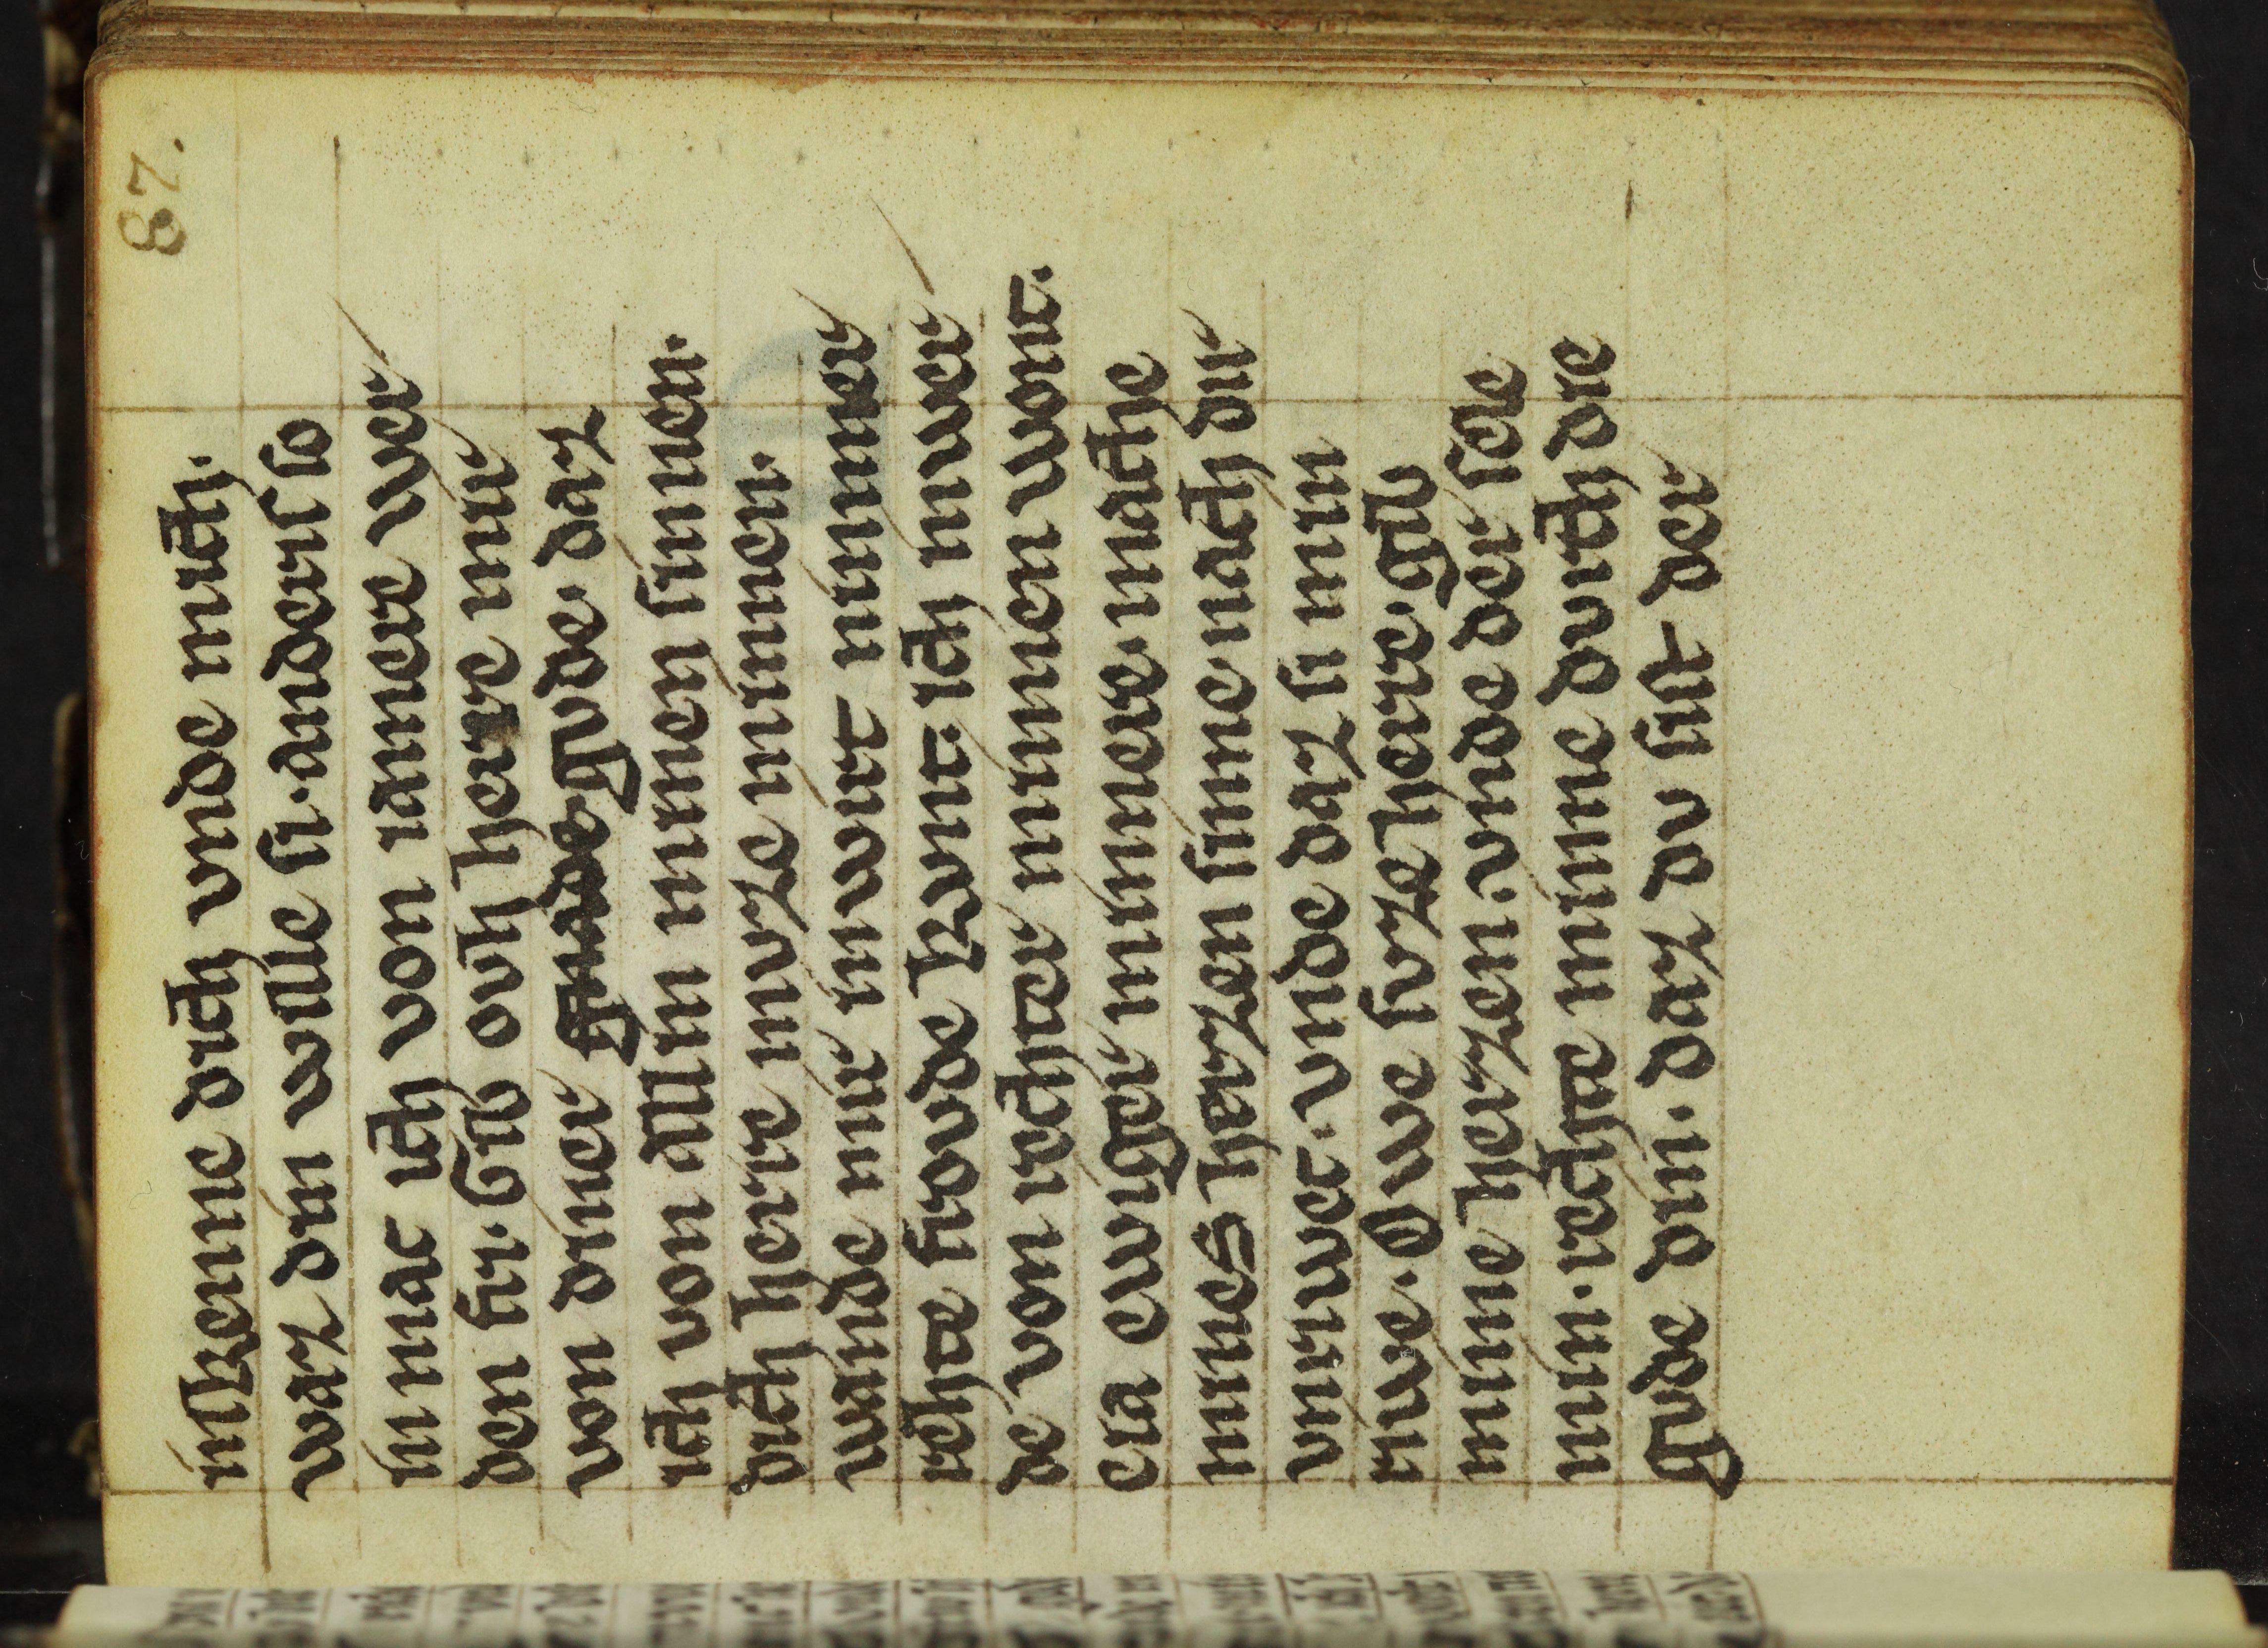 87.
inkenne dich vnde mich.
waz din wille si. anders so
in mac ich von iamere wer
den fri. Gib ovh herre mir
von diner gnade gvde. daz
ich von allin minen sinnen.
dich herre mvze minnen.
wande mir inwirt nimmer
rehte frovde kvnt. ich inwer
de von rechter minnen wont.
eia ewiger minnere. mache
mines herzen sinne. nach dir
virwet. vnde daz si min
rivve. Owe svze herre. gib
minne herzen. vnde der sele
min. rechte minne dvrch die
gvde din. daz dv sist der